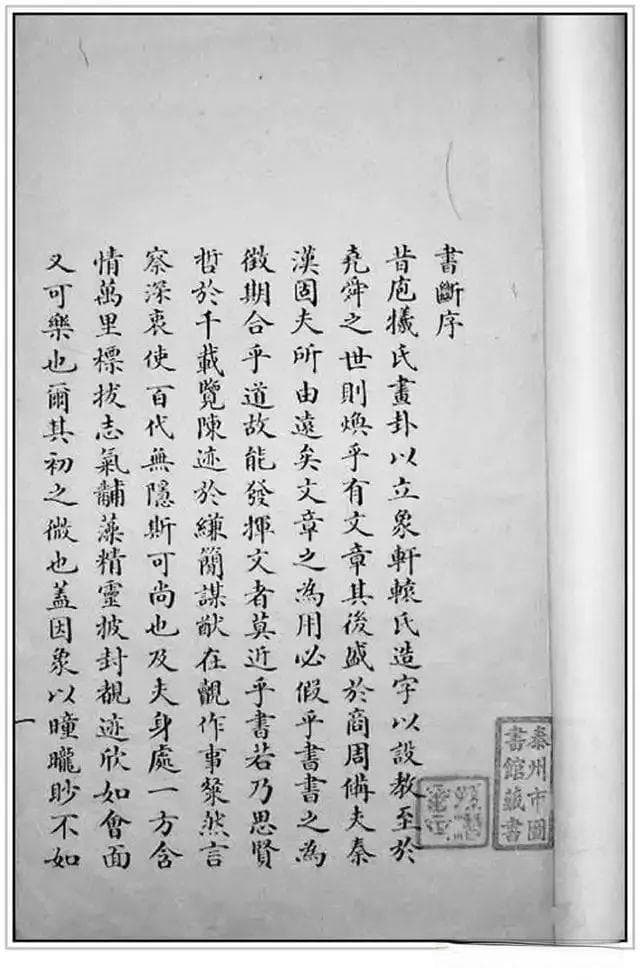 泰州市圖
書館藏書
書斷序
昔庖犧氏畫卦以立象軒轅氏造字以設教至於
堯舜之世則煥乎有文章其後盛於商周備夫秦
漢固夫所由遠矣文章之為用必假乎書書之為
徵期合乎道故能發揮文者莫近乎書若乃思賢
哲於千載覽陳迹於縑簡謀猷在覿作事粲然言
察深衷使百代無隱斯可尚也及夫身處一方含
情萬里標拔志氣黼藻精靈披封覩迹欣如會面
又可樂也爾其初之微也蓋因象以瞳矓眇不如
一